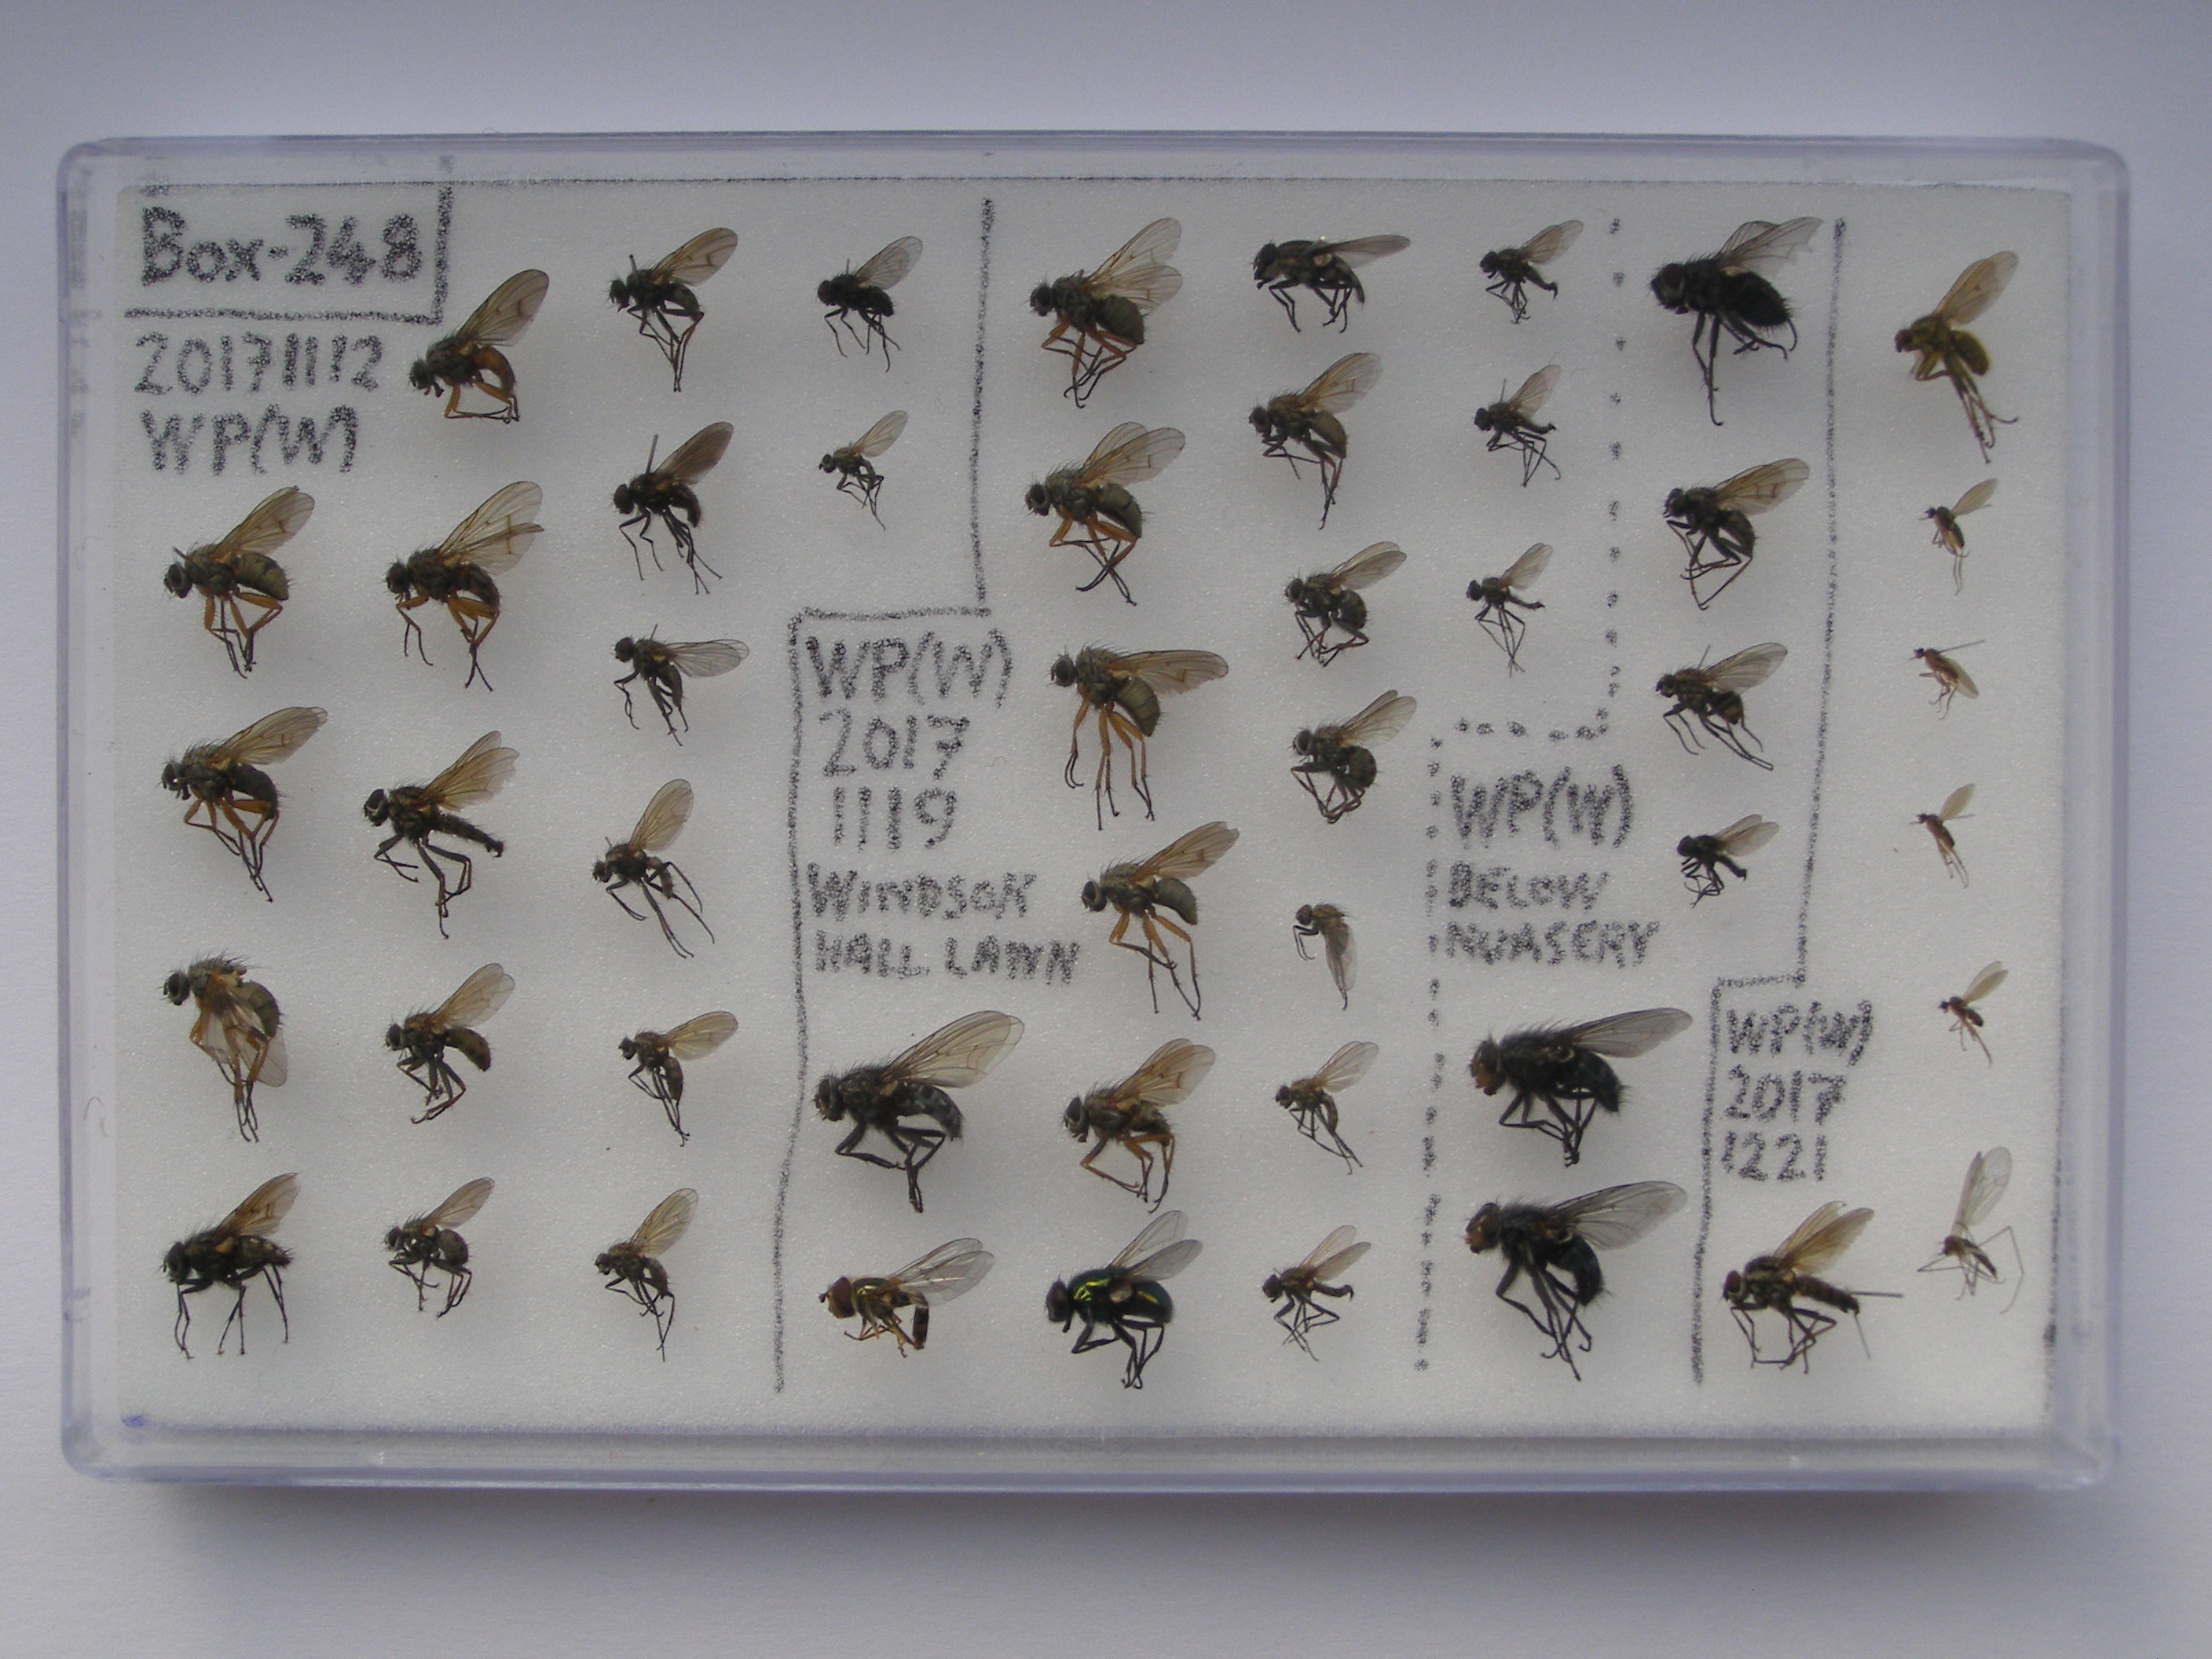 Box-248
20171112
WP(W)
WP(W)
2017
1119
WINDSOR
HALL LAWN
WP(W)
BELOW
NURSERY
WP(W)
2017
1221